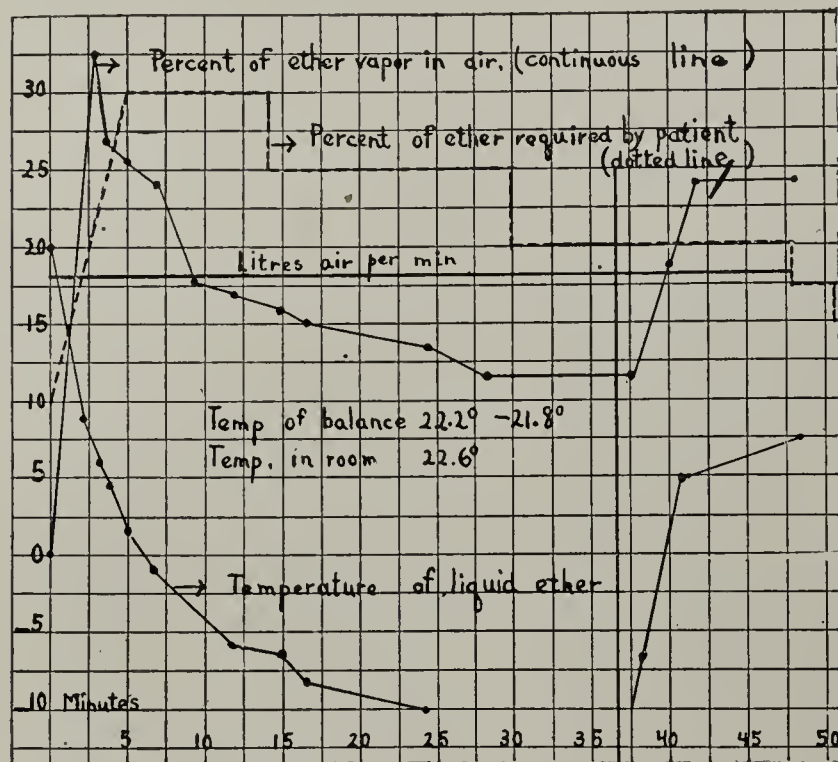 30
25
20
15
10
5
0
-5
-10
→ Percent of ether vapor in air. (continuous line)
→ Percent of ether required by patient
(dotted line)
Litres air per min
Temp of balance 22.2° -21.8°
Temp. in room 22.6°
→ Temperature of liquid ether
Minutes
5 10 15 20 25 30 35 40 45 50